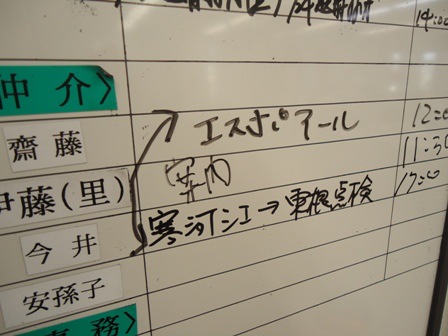 14:00
仲介>
齋藤 エスポアール 12:0
伊藤(里) 案内 11:30
今井 寒河江→電根点検 17:0
安孫子
事務>